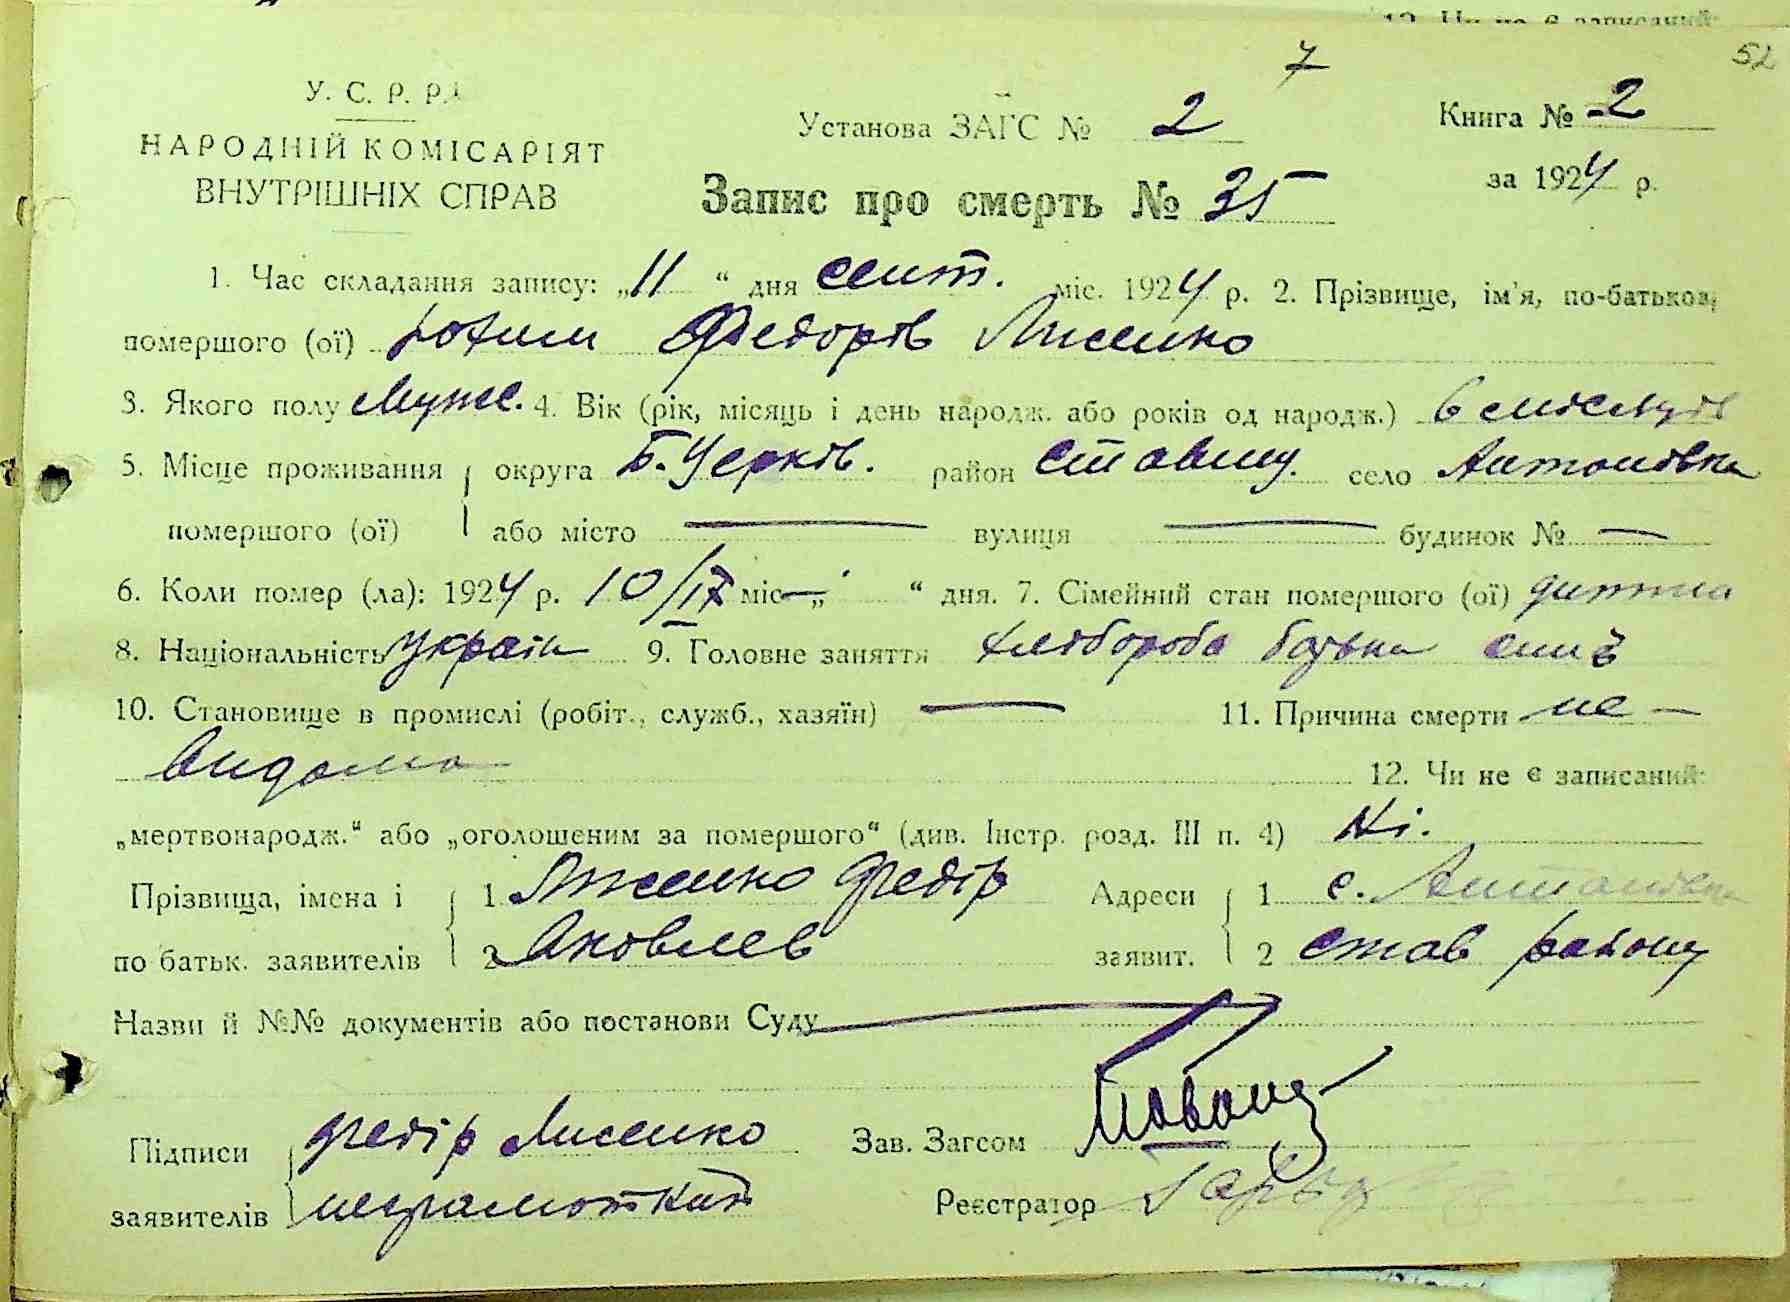 52
7
У. С. Р. Р.
НАРОДНІЙ КОМІСАРІЯТ
ВНУТРІШНІХ СПРАВ
Установа ЗАГС № 2
Книга № 2
за 1924 р.
Запис про смерть № 35
1. Час складання запису: „11 “ дня сент. міс. 1924 р. 2. Прізвище, ім'я, по-батькові
помершого (ої) Юхим Федорів Лисенко
3. Якого полу Муже. 4. Вік (рік, місяць і день народж. або років од народж.) 6 місяців
5. Місце проживання округа Б. Церків. район Ставищ. село Антонівка
помершого (ої) або місто — вулиця — будинок № —
6. Коли помер (ла): 1924 р. 10/IX міс — „ “ дня. 7. Сімейний стан помершого (ої) дитина
8. Національність Україн 9. Головне заняття хлібороба батька син
10. Становище в промислі (робіт., служб., хазяїн) — 11. Причина смерти не-
видома
12. Чи не є записаний:
„мертвонародж.“ або „оголошеним за помершого“ (див. Інстр. розд. III п. 4) Ні.
Прізвища, імена і 1 Лисенко Федір Адреси 1 с. Антонівка
по батьк. заявителів 2 Яковлев заявит. 2 Став району
Назви й №№ документів або постанови Суду —
Підписи Федір Лисенко Зав. Загсом
заявителів неграмоткий Реєстратор